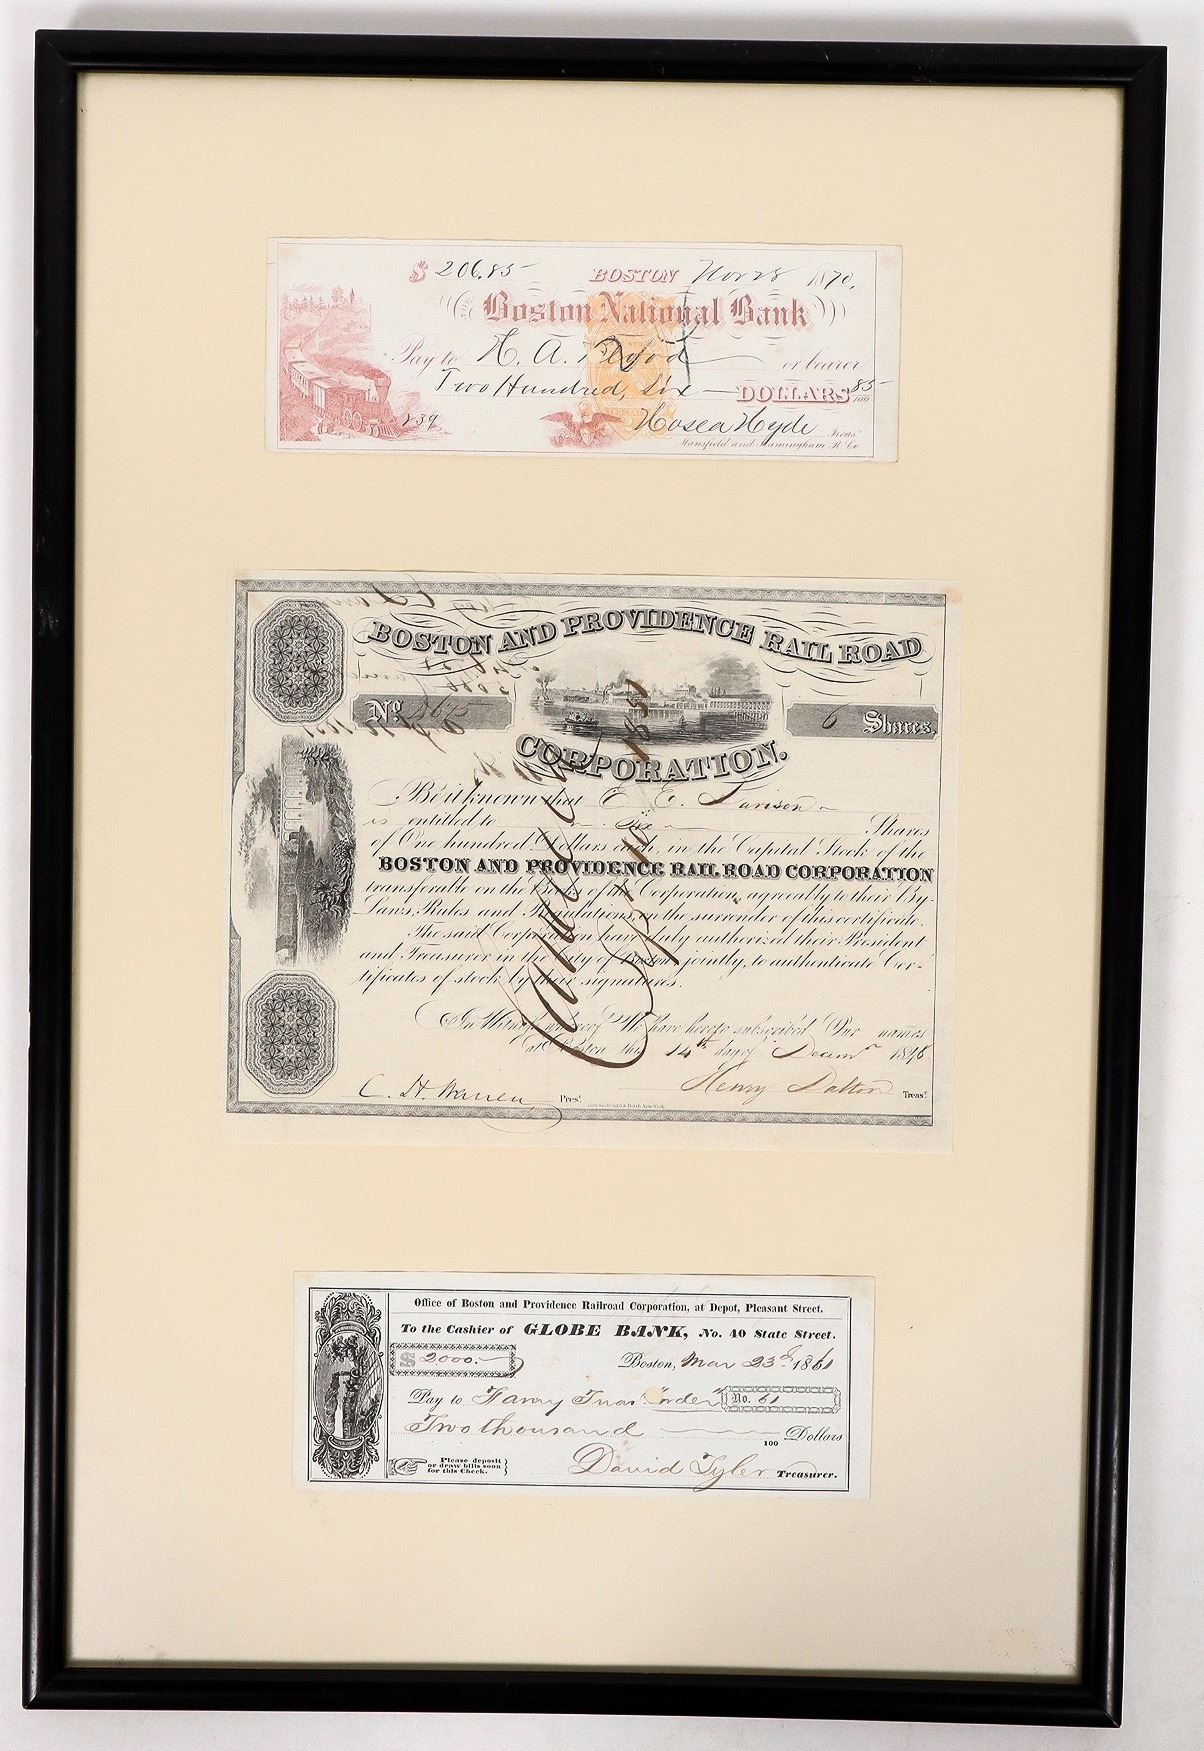 $ 206.85 BOSTON Nov 28 1870.
Boston National Bank
Pay to H. A. Blood or bearer
Two Hundred, Six — DOLLARS 85/100
239 Hosea Hyde Treas.
Mansfield and Framingham R. Co
BOSTON AND PROVIDENCE RAIL ROAD
No 6 Shares.
CORPORATION.
Be it known that E. E.
is entitled to Six Shares
of One hundred Dollars each, in the Capital Stock of the
BOSTON AND PROVIDENCE RAIL ROAD CORPORATION
transferable on the Books of the Corporation, agreeably to their By-
Laws, Rules and Regulations, on the surrender of this certificate.
The said Corporation have duly authorized their President
and Treasurer in the City of Boston, jointly, to authenticate Cer-
tificates of stock by their signatures.
In Witness whereof We have hereto subscribed Our names
at Boston this 14th day of Decemr
C. H. Warren Prest. Henry Dalton Treast.
Cancelled
1851
Office of Boston and Providence Railroad Corporation, at Depot, Pleasant Street.
To the Cashier of GLOBE BANK, No. 40 State Street.
$ 2000.- Boston, Mar 23d 1861
Pay to order No. 61
Two thousand 100 Dollars
Please deposit
or draw bills soon
for this Check.
David Tyler Treasurer.